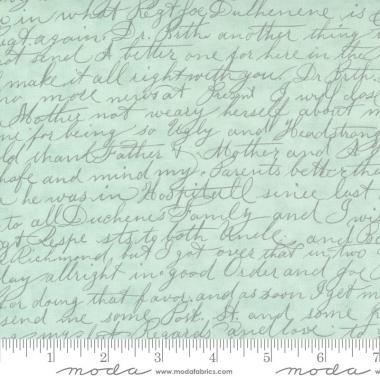 in what Regt Joe Duchenene is
again. Dr. Brth. another thing
not send A better one for here in the
make it all right with you. Dr Brth.
no more news at Present I will close
Mother not weary herself about m
me for being so Ugly and Headstrong
ld thank Father & Mother and A
hafe and mind my Parents better tha
he was in Hospitall since last
to all Duchenes Family and I wis
Respe sts to both Uncle. and
Richmond, but I got over that in two
day allright in good Order and
or doing that favor. and as soon I get m
send me some Post. St. and some
Regards and love to
1 2 3 4 5 6 7
moda www.modafabrics.com moda www.modafabrics.com moda